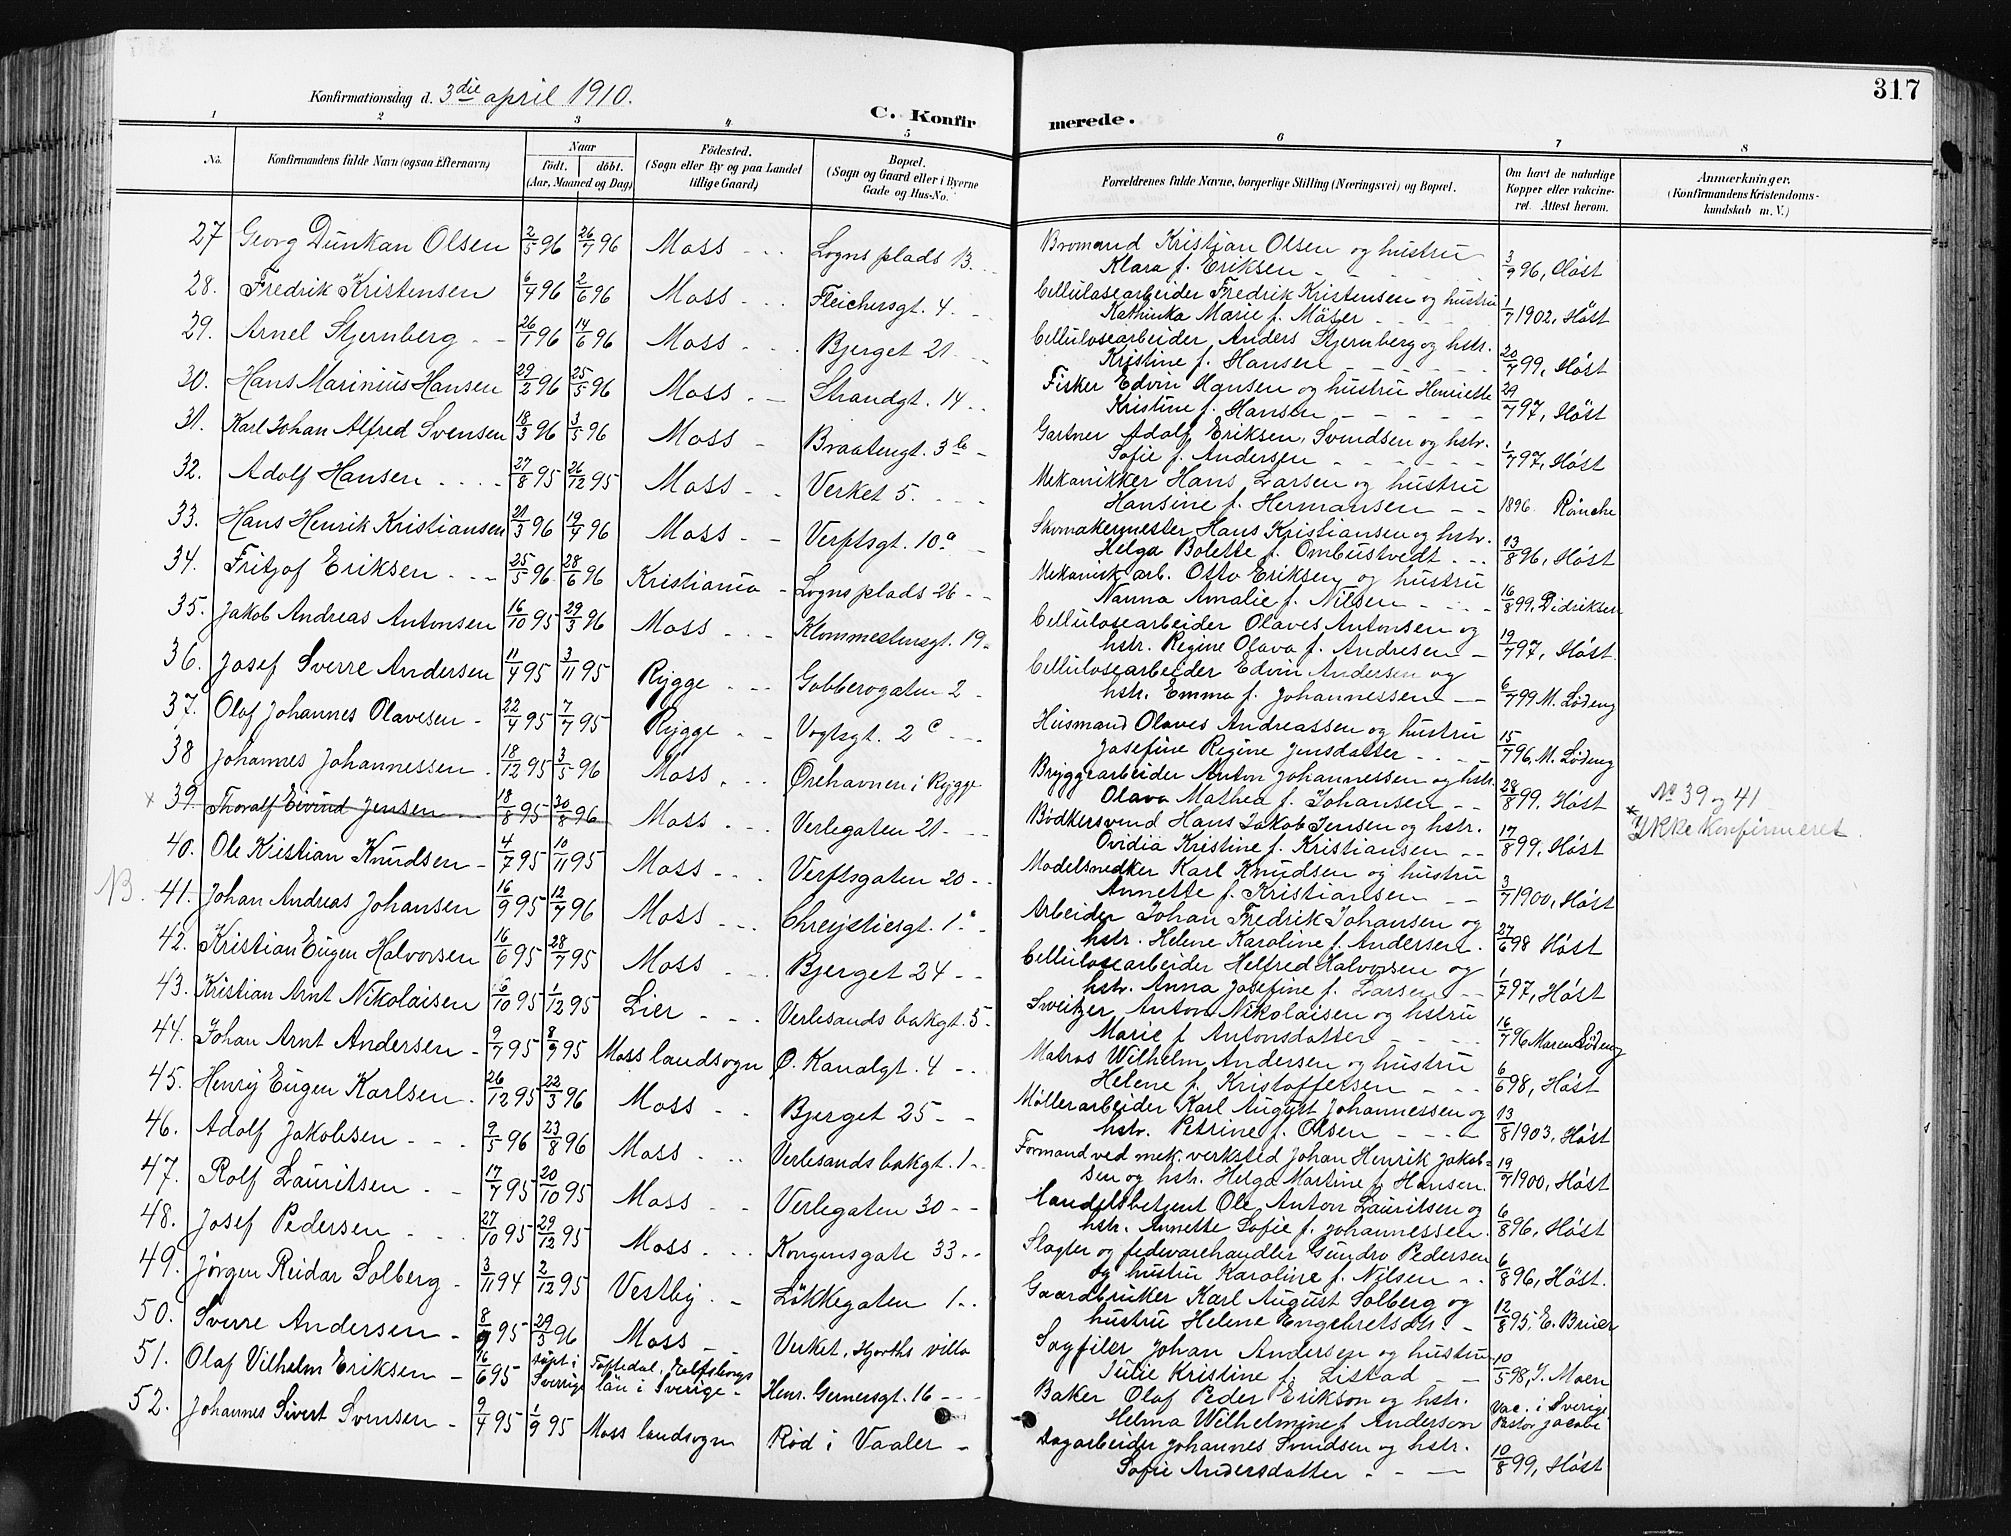 317
Konfirmationsdag d. 3die april 1910.
C. Konfirmerede.
1 2 3 4 5 6 7 8
No.
Konfirmandens fulde Navn (ogsaa Efternavn)
Naar
født. døbt.
(Aar, Maaned og Dag)
Fødested.
(Sogn eller By og paa Landet
tillige Gaard)
Bopæl.
(Sogn og Gaard eller i Byerne
Gade og Hus-No.
Forældrenes fulde Navne, borgerlige Stilling (Næringsvei) og Bopæl.
Om havt de naturlige
Kopper eller vakcine-
ret. Attest herom.
Anmærkninger.
(Konfirmandens Kristendoms-
kundskab m. V.)
27 Georg Dunkan Olsen 2/5 96 26/7 96 Moss Logns plads 13. Bromand Kristian Olsen og hustru
Klara f. Eriksen 3/9 96, Høst
28. Fredrik Kristensen 6/4 96 2/6 96 Moss Fleichersgt. 4. Cellulosearbeider Fredrik Kristensen og hustru
Kathinka Marie f. Möser 1/7 1902, Høst
29. Arnel Stjernberg 26/1 96 14/6 96 Moss Bjerget 21. Cellulosearbeider Anders Stjernberg og hstr.
Kristine f. Hansen 20/7 99, Høst
30. Hans Marinius Hansen 29/2 96 25/5 96 Moss Strandgt. 14 Fisker Edvin Hansen og hustru Henriette
Kristine f. Hansen 29/7 97, Høst
31. Karl Johan Alfred Svensen 18/3 96 3/5 96 Moss Braatengt. 3b Gartner Adolf Eriksen Svendsen og hstr.
Sofie f. Andersen 1/7 97, Høst
32. Adolf Hansen 27/8 95 26/12 95 Moss Verket 5. Mekanikker Hans Larsen og hustru
Hansine f. Hermansen 1896. Rønche
33. Hans Henrik Kristiansen 21/3 96 19/4 96 Moss Verftsgt. 10a Skomakermester Hans Kristiansen og hstr.
Helga Bolette f. Ombustvedt 13/8 96, Høst
34. Fritjof Eriksen 25/5 96 28/6 96 Kristiania Logns plads 26 Mekanisk arb. Otto Eriksen og hustru
Nanna Amalie f. Nilsen 16/8 99, Didriksen
35. Jakob Andreas Antonsen 16/10 95 29/3 96 Moss Klommestensgt. 19. Cellulosearbeider Olaves Antonsen og
hstr. Regine Olava f. Andresen 19/7 97, Høst.
36. Josef Sverre Andersen 11/4 95 3/11 95 Rygge Gobberogaten 2 Cellulosearbeider Edvin Andersen og
hstr. Emma f. Johannessen 6/7 99 M. Lödeng
37. Olaf Johannes Olavesen 22/4 95 7/7 95 Rygge Vogtsgt. 2c Husmand Olaves Andreassen og hustru
Josefine Regine Jensdatter 15/7 96, M. Lödeng
38 Johannes Johannessen 18/12 95 3/5 96 Moss Ørehavnen i Rygge Bryggearbeider Anton Johannessen og hstr.
Olava Mathea f. Johansen 28/8 99, Høst
× 39. Thoralf Eivind Jensen 18/8 95 30/8 96 Moss Verlegaten 21. Bødkersvend Hans Jakob Jensen og hstr.
Ovidia Kristine f. Kristiansen 17/8 99, Høst
No 39 og 41
* Ikke konfirmeret.
40. Ole Kristian Knudsen 4/7 95 10/11 95 Moss Verftsgaten 20 Modelsnedker Karl Knudsen og hustru
Annette f. Kristiansen 3/7 1900, Høst
NB. 41. Johan Andreas Johansen 16/9 95 12/7 96 Moss Chrejstiesgt. 1. Arbeider Johan Fredrik Johansen og
hstr. Helene Karoline f. Andersen. 27/6 98 Høst
42. Kristian Eugen Halvorsen 16/6 95 28/7 95 Moss Bjerget 24 Cellulosearbeider Helfred Halvorsen og
hstr. Anna Josefine f. Larsen 1/7 97, Høst
43. Kristian Arnt Nikolaisen 6/10 95 1/12 95 Lier Verlesands bakgt. 5 Sweitzer Anton Nikolaisen og hstru
Marie f Antonsdatter 16/7 96 Maren Lödeng
44. Johan Arnt Andersen 9/7 95 8/9 95 Moss landsogn Ø. Kanalgt. 4 Matros Wilhelm Andersen og hustru
Helene f. Kristoffersen 6/6 98, Høst
45. Henry Eugen Karlsen 26/12 95 22/3 96 Moss Bjerget 25 Møllerarbeider Karl August Johannessen og
hstr. Petrine f. Olsen 13/8 1903, Høst
46. Adolf Jakobsen 9/5 96 23/8 96 Moss Verlesands bakgt. 1 Formand ved mek. verksted Johan Henrik Jakob-
sen og hstr. Helga Martine f. Hansen. 19/7 1900, Høst
47. Rolf Lauritsen 17/7 95 20/10 95 Moss Verlegaten 30 Handelsbetjent Ole Anton Lauritsen og
hstr. Annette Sofie f. Johannessen. 6/8 96, Høst
48. Josef Pedersen 27/10 95 29/12 95 Moss Kongensgate 33 Slagter og fedevarehandler Gundro Pedersen
og hustru Karoline f. Nilsen 6/8 96, Høst.
49. Jørgen Reidar Solberg 3/11 94 2/12 95 Vestby Løkkegaten 1 Gaardbruker Karl August Solberg og
hustru Helene Engebretsdtr. 12/8 95, E. Brier
50. Sverre Andersen 8/9 95 29/3 96 Moss Verket, Hjorths villa Sagfiler Johan Andersen og hustru
Julie Kristine f. Listad 10/5 98, J. Moen
51. Olaf Vilhelm Eriksen 16/6 95 døpt i Sverige Töftedal, Elfsborgs län i Sverige Henr. Gernersgt. 16 Baker Olaf Peder Erikson og hstr.
Helma Wilhelmine f. Anderson Vac. i Sverige Pastor Jacobi
52. Johannes Sivert Svensen 9/4 95 1/9 95 Moss landsogn Rød i Vaaler Dagarbeider Johannes Svendsen og hstr.
Sofie Andersdatter 10/8 99, Høst